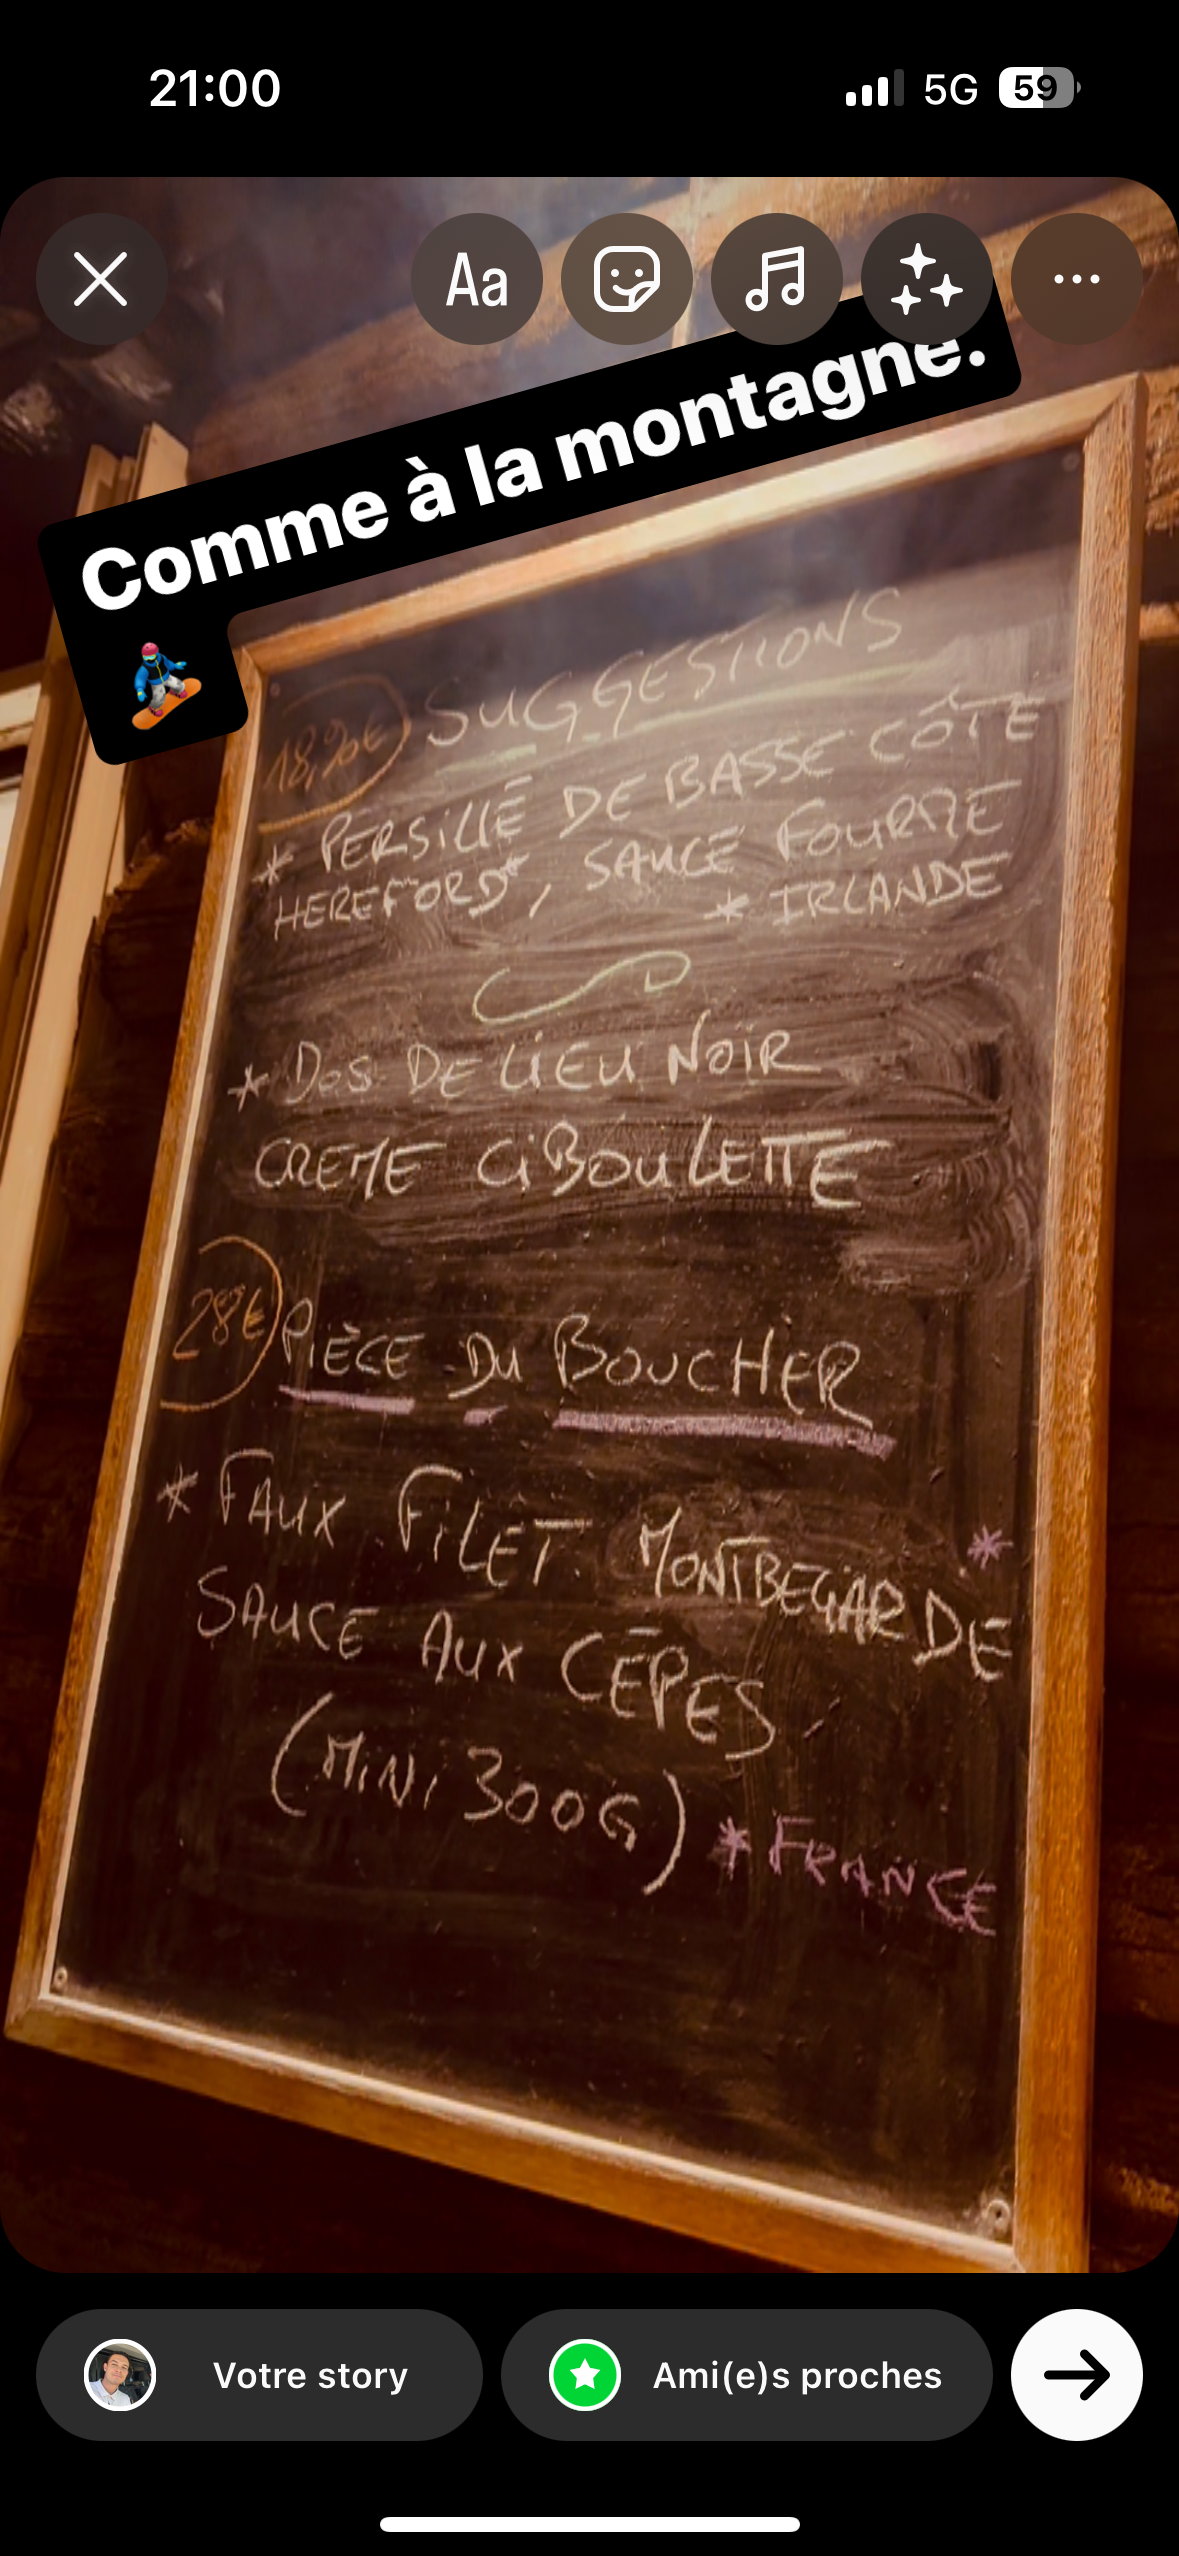 21:00
5G
59
Aa
Comme à la montagne.
🏂
SUGGESTIONS
18,90€
* PERSILLÉ DE BASSE CÔTE
HEREFORD*, SAUCE FOURME
* IRLANDE
* DOS DE LIEU NOIR
CREME CIBOULETTE
28€
PIÈCE DU BOUCHER
* FAUX FILET MONTBEGARDE *
SAUCE AUX CÈPES
(MINI 300G) * FRANCE
Votre story
Ami(e)s proches